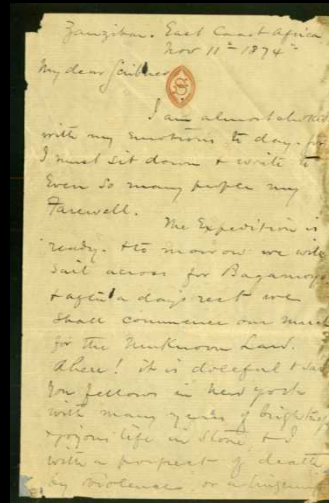 Zanzibar. East Coast Africa
Nov 11th 1874
My dear Scribner
I am almost choked
with my emotions to day. for
I must sit down & write to
Ever so many people my
Farewell.
The Expedition is
ready. & to morrow we will
sail across for Bagamoyo
& after a days rest we
shall commence our march
for the Unknown Land.
Ahem! it is doleful & sad
You fellows in New York
with many years of bright
& joyous life in store & I
with a prospect of death
by violence or a lingering